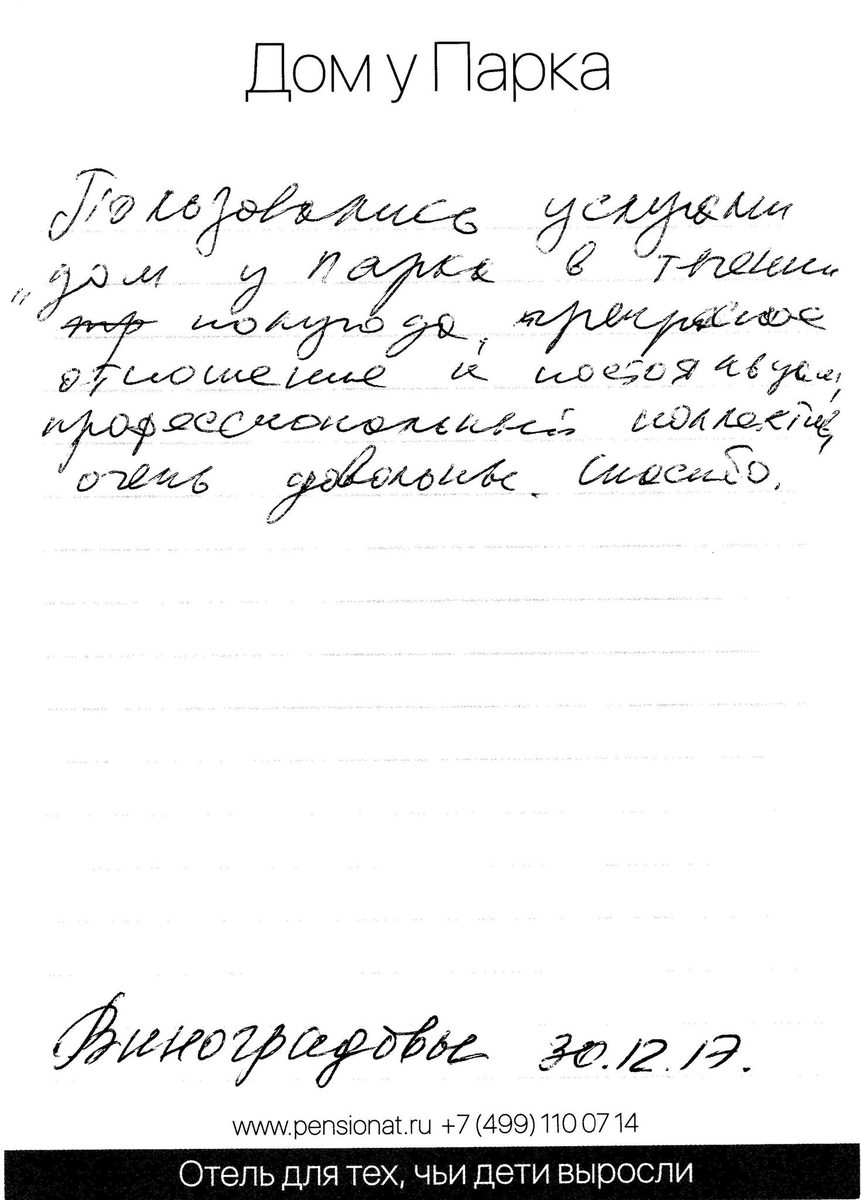 Дом у Парка
Пользовались услугами
„дом у парка в течении
полугода, прекрасное
отношение к постояльцам,
профессиональный коллектив,
очень довольны. Спасибо.
Виноградовы 30.12.17.
www.pensionat.ru +7 (499) 110 07 14
Отель для тех, чьи дети выросли